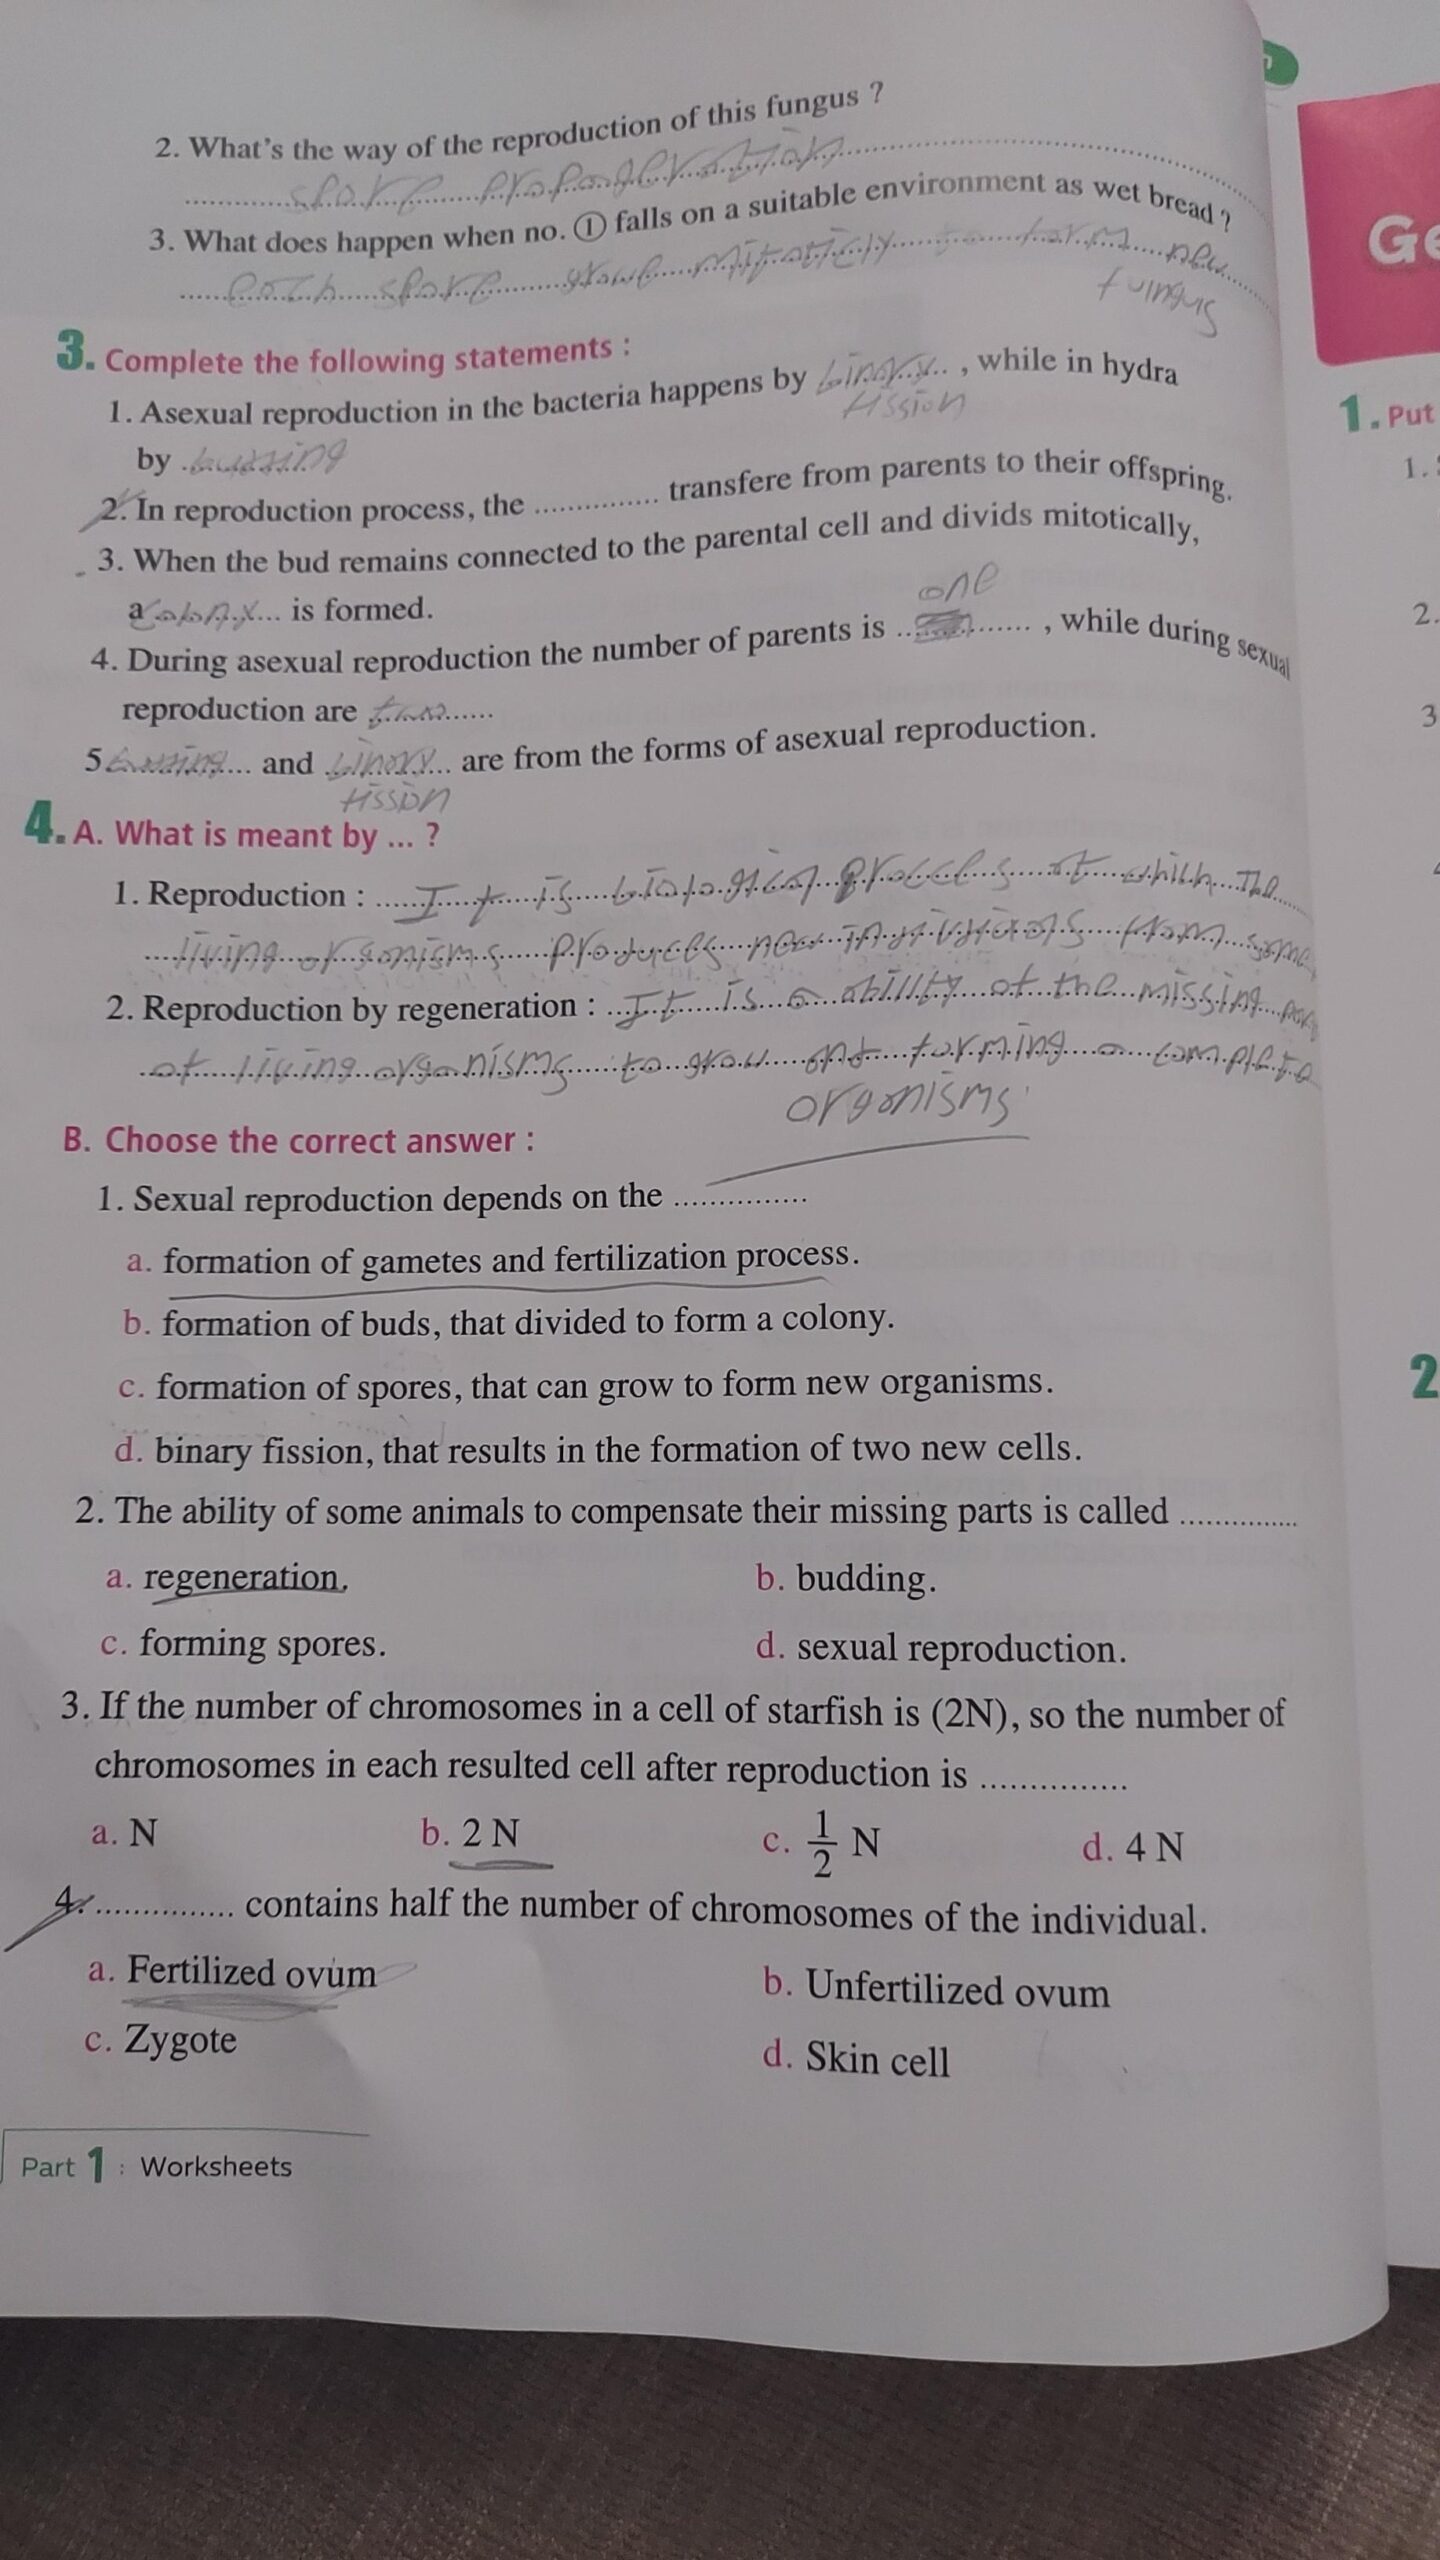 2. What's the way of the reproduction of this fungus ?
spore
3. What does happen when no. ① falls on a suitable environment as wet bread ?
each spore grows mitoticly to form new
fuingus
Ge
3. Complete the following statements :
1. Asexual reproduction in the bacteria happens by binary , while in hydra
fission
by budding
2. In reproduction process, the ............... transfere from parents to their offspring.
3. When the bud remains connected to the parental cell and divids mitotically,
a colony is formed.
one
4. During asexual reproduction the number of parents is ............... , while during sexual
reproduction are two
5 budding and binary are from the forms of asexual reproduction.
fission
4. A. What is meant by ... ?
1. Reproduction : It is biological process at which the
living organisms produces new individuals from same
2. Reproduction by regeneration : It is a ability of the missing
of living organisms to grow and forming a complete
organisms
B. Choose the correct answer :
1. Sexual reproduction depends on the ...............
a. formation of gametes and fertilization process.
b. formation of buds, that divided to form a colony.
c. formation of spores, that can grow to form new organisms.
d. binary fission, that results in the formation of two new cells.
2. The ability of some animals to compensate their missing parts is called ...............
a. regeneration. b. budding.
c. forming spores. d. sexual reproduction.
3. If the number of chromosomes in a cell of starfish is (2N), so the number of
chromosomes in each resulted cell after reproduction is ...............
a. N b. 2 N c. 1/2 N d. 4 N
4. ............... contains half the number of chromosomes of the individual.
a. Fertilized ovum b. Unfertilized ovum
c. Zygote d. Skin cell
Part 1 : Worksheets
1. Put
1.
2.
3
2